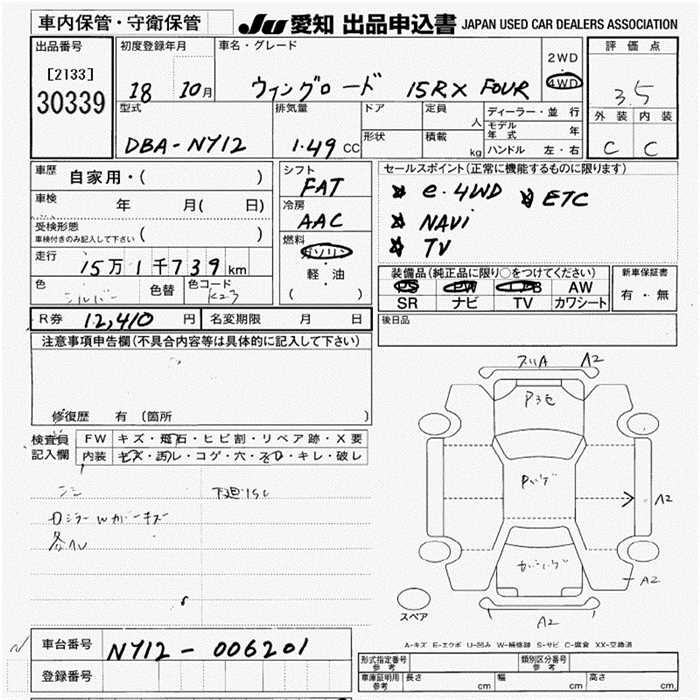 車内保管・守衛保管
JU 愛知 出品申込書 JAPAN USED CAR DEALERS ASSOCIATION
出品番号
[2133]
30339
初度登録年月
18 10月
車名・グレード
ウィングロード 15RX FOUR
2WD
4WD
評価点
3.5
外装 内装
C C
型式
DBA-NY12
排気量
1.49 CC
ドア
形状
定員 人
積載 kg
ディーラー・並行
モデル年式 年
ハンドル 左・右
車歴
自家用・( )
車検 年 月( 日)
受検形態
車検付きのみ記入して下さい ( )
走行
15万1千739km
色 シルバー 色替 色コード K23
シフト
FAT
冷房
AAC
燃料
ガソリン
・
軽・油
( )
セールスポイント(正常に機能するものに限ります)
e・4WD ETC
NAVi
TV
装備品(純正品に限り○をつけてください)
PS PW AW
SR ナビ TV カワシート
新車保証書
有・無
R券 12,410円 名変期限 月 日
後日品
注意事項申告欄(不具合内容等は具体的に記入して下さい)
修復歴 有 (箇所 )
検査員記入欄
FW キズ・飛石・ヒビ割・リペア跡・X要
内装 キズ・汚レ・コゲ・穴・スレ・キレ・破レ
スリA A2
A2
A2
A2
スペア
A-キズ E-エクボ U-凹み W-補修跡 S-サビ C-腐食 XX-交換済
車台番号 NY12-006201
登録番号
形式指定番号
参考
類別区分番号
参考
車庫証明用
参考
長さ cm 幅 cm 高さ cm